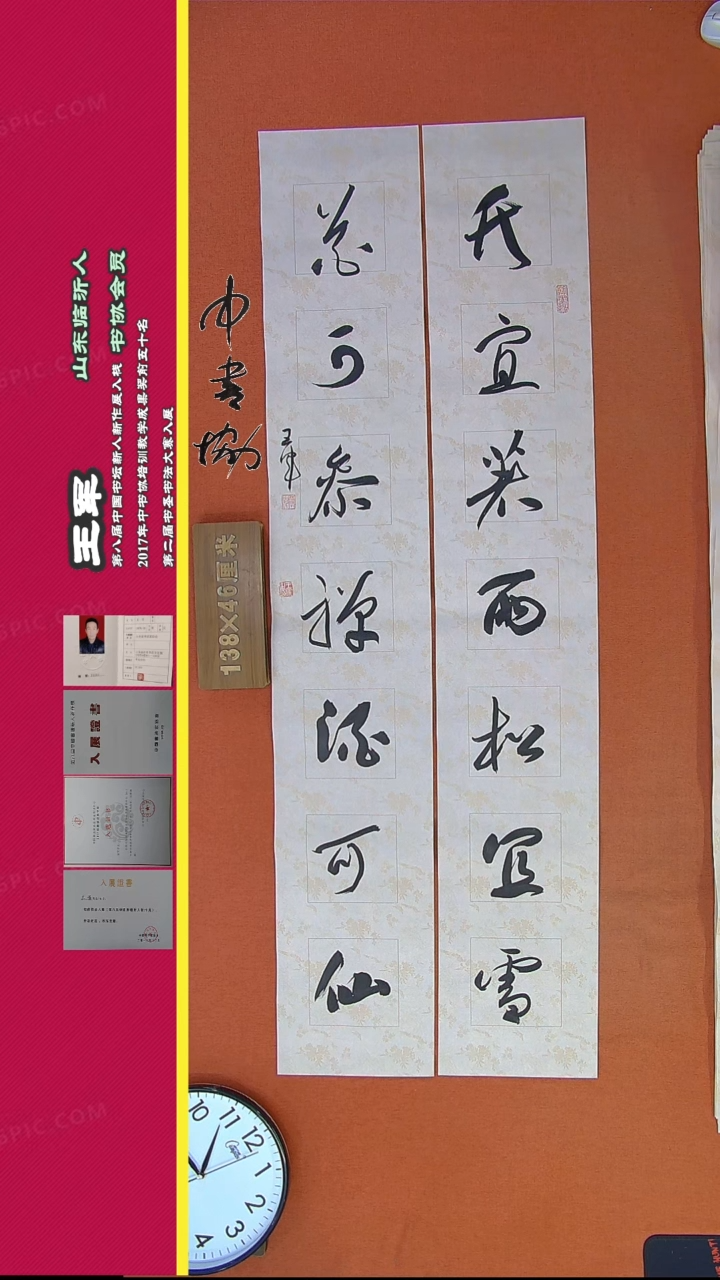 竹宜著雨松宜雪
花可参禅酒可仙
王军
中書協
138×46厘米
山东临沂人
书协会员
王军
第八届中国书坛新人新作展入展
2017年中书协培训教学成果奖前五十名
第二届书圣书法大赛入展
入展證書
入展證書
10 11 12 1 2 3 4
SPIC.COM